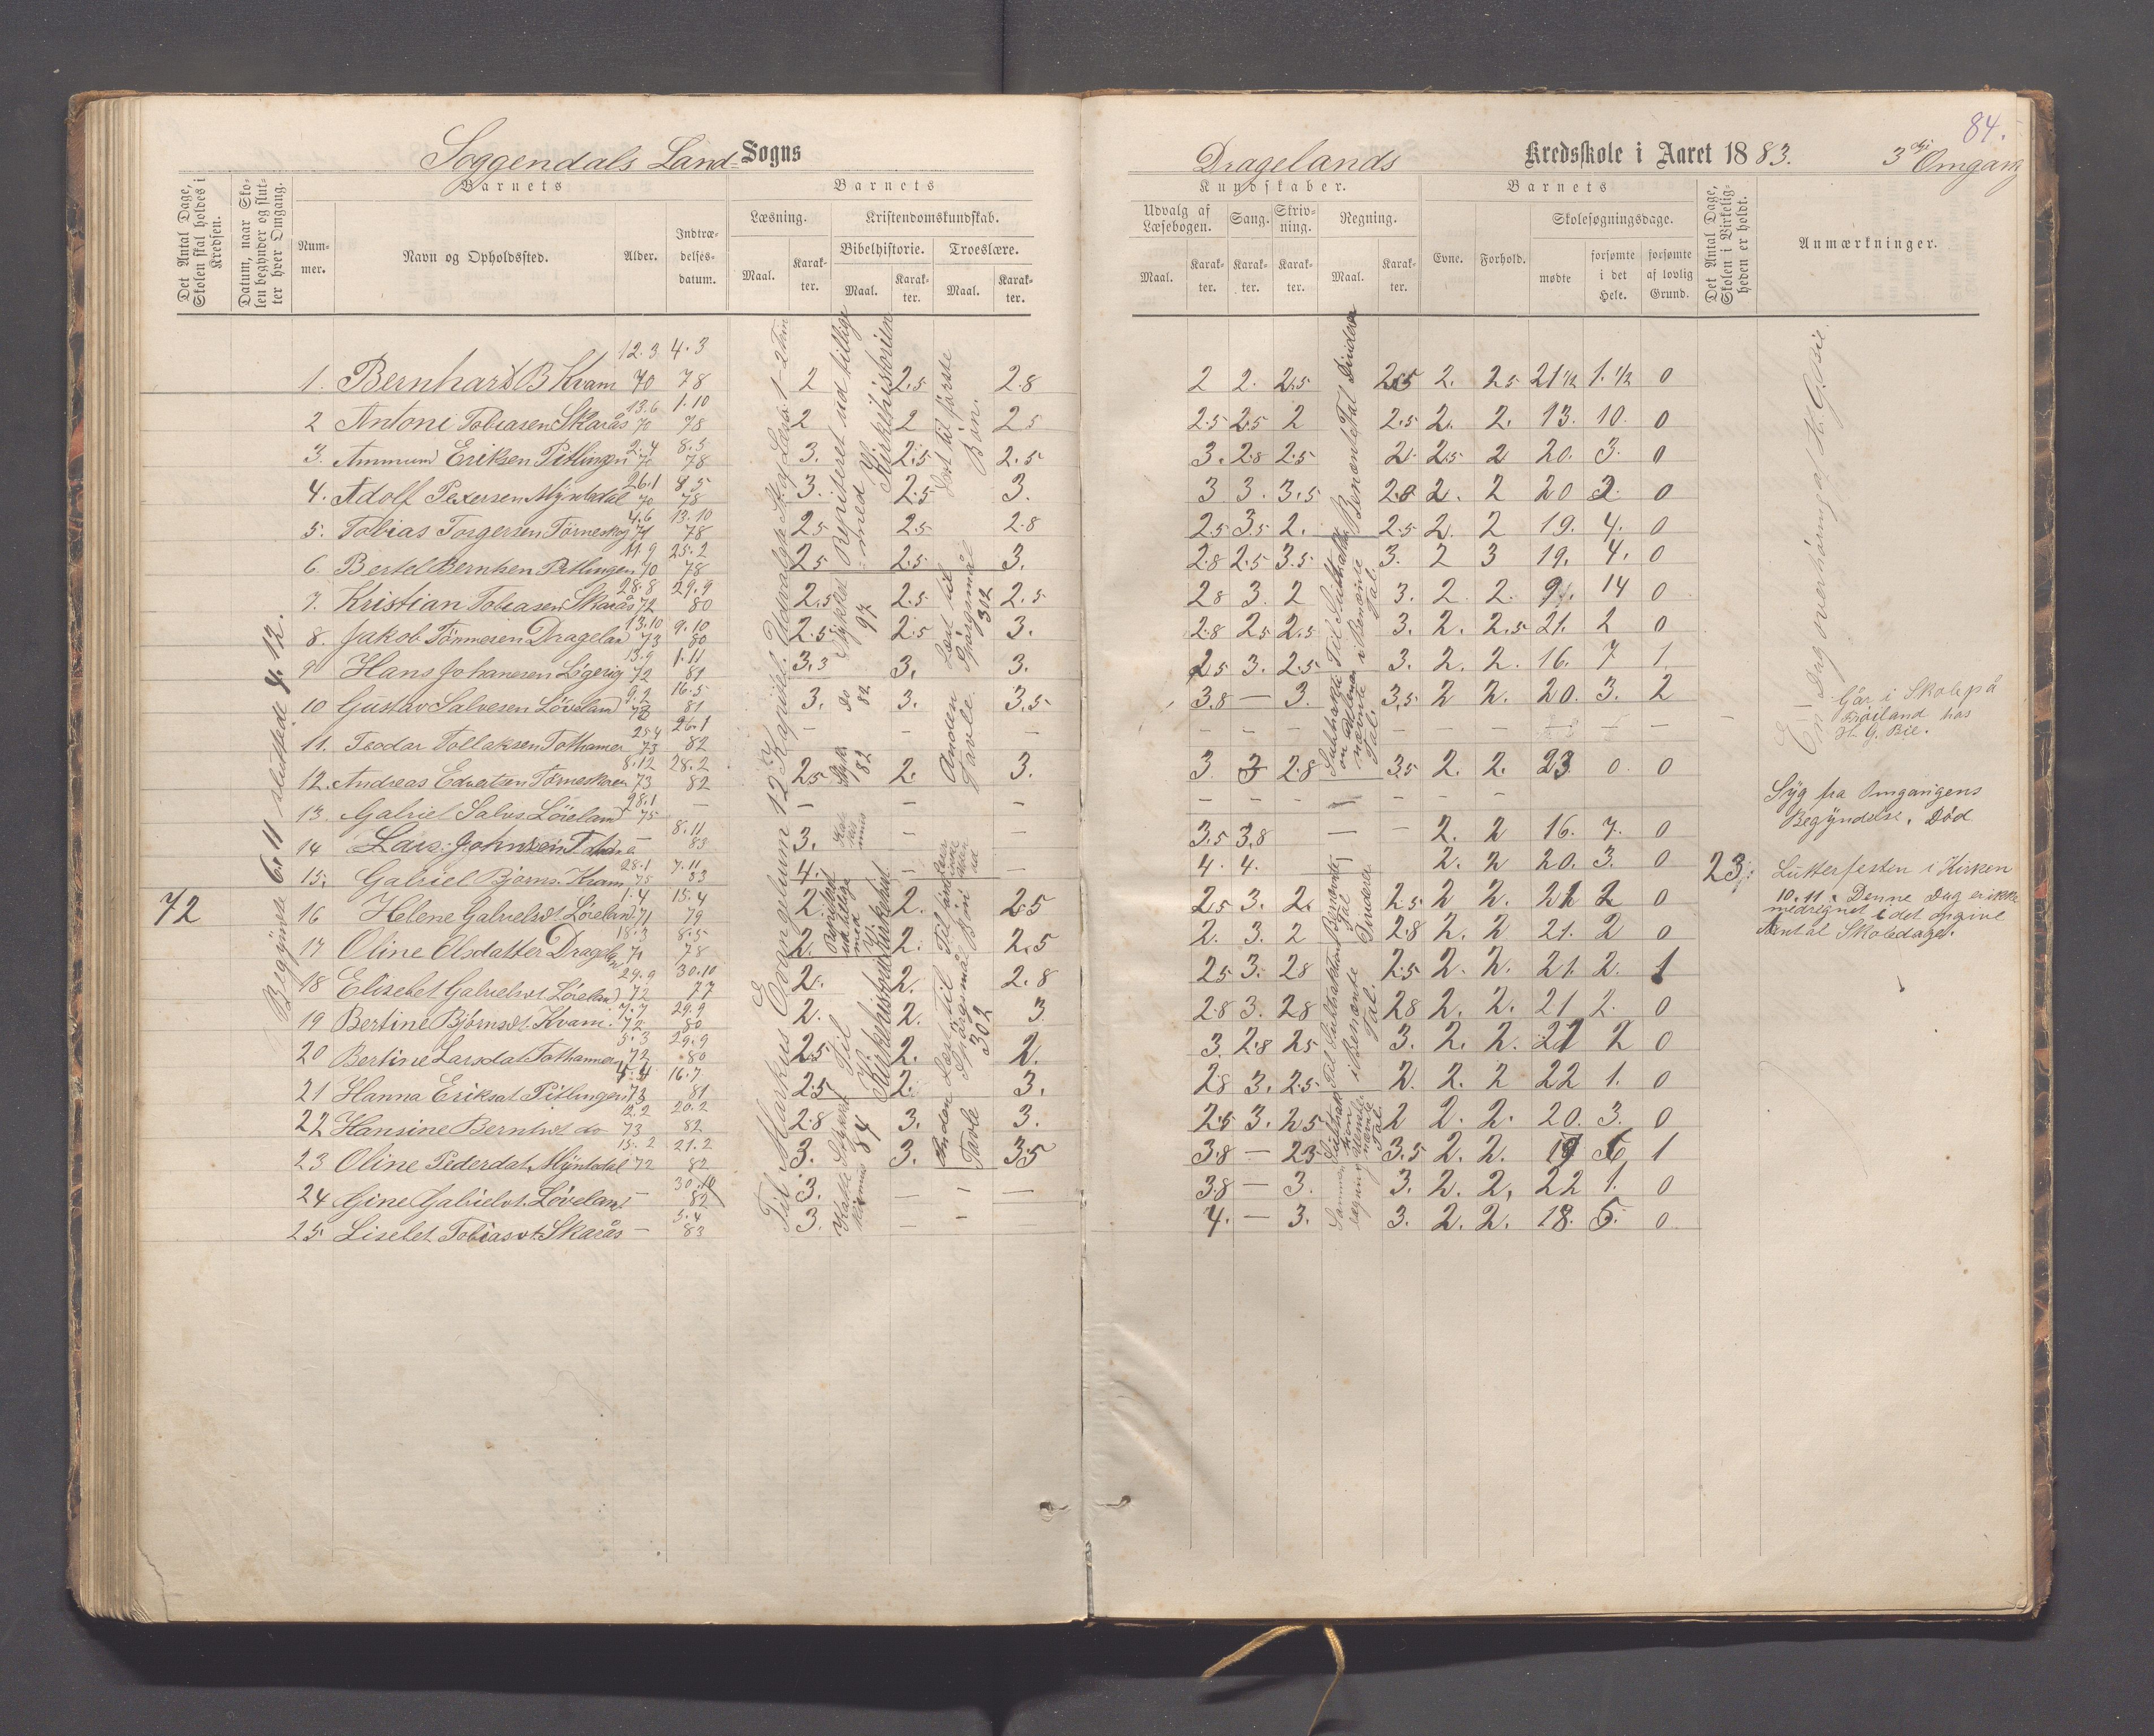 84.
Soggendals Land- Sogns
Dragelands Kredsskole i Aaret 1883. 3die Omgang
Det Antal Dage, Skolen skal holdes i Kredsen.
Datum, naar Skolen begynder og slutter hver Omgang.
Barnets
Nummer.
Navn og Opholdssted.
Alder.
Indtrædelsesdatum.
Barnets
Læsning.
Maal.
Karakter.
Kristendomskundskab.
Bibelhistorie.
Maal.
Karakter.
Troeslære.
Maal.
Karakter.
Kundskaber.
Udvalg af Læsebogen.
Maal.
Karakter.
Sang.
Karakter.
Skrivning.
Karakter.
Regning.
Maal.
Karakter.
Barnets
Evne.
Forhold.
Skolesøgningsdage.
mødte
forsømte i det Hele.
forsømte af lovlig Grund.
Det Antal Dage, Skolen i Virkeligheden er holdt.
Anmærkninger.
72
Begyndte 6.11 sluttede 4.12.
1. Bernhard B Kvam 12.3 70 4.3 78 2 2.5 2.8 2 2. 2.5 2.5 2. 2.5 21 1/2 1. 1/2 0
2 Antoni Tobiasen Skarås 13.6 70 1.10 78 2 2 2.5 2.5 2.5 2 2.5 2. 2. 13. 10. 0
3. Ammund Eriksen Pitlingen 2.4 70 8.5 78 3. 2.5 2.5 3. 2.8 2.5 2. 2.5 2 20. 3. 0
4. Adolf Pedersen Myndedal 26.1 70 8.5 78 3. 2.5 3. 3 3. 3.5 2.8 2. 2 20 3. 0
5. Tobias Torgersen Tørneskog 4.6 71 13.10 78 2.5 2.5 2.8 2.5 3.5 2. 2.5 2. 2 19. 4. 0
6. Bertel Berntsen Pitlingen 11.9 70 25.2 78 2.5 2.5 3. 2.8 2.5 3.5 3. 2 3 19. 4. 0
7. Kristian Tobiasen Skarås 28.8 72 29.9 80 2.5 2.5 2.5 2.8 3. 2 3. 2. 2. 9. 14 0
8. Jakob Tønnesen Dragelan 13.10 73 9.10 80 2.5 2.5 3. 2.8 2.5 2.5 3. 2. 2.5 21. 2 0
9 Hans Johanesen Ligerig 13.9 72 1.11 81 3.3 3. 3. 2.5 3. 2.5 3. 2. 2. 16. 7 1.
10 Gustav Salvesen Løveland 9.2 72 16.5 81 3. 3. 3.5 3.8 — 3. 3.5 2 2. 20. 3. 2
11. Teodor Tollaksen Tothamer 25.4 73 26.1 82 — — — — — — — — — — — —
12. Andreas Edvatsen Tørneskoen 8.12 73 28.2 82 2.5 2. 3. 3. 3 2.8 3.5 2. 2. 23 0. 0
13. Gabriel Salvs. Løveland 28.1 75 — — — — — — — — — —
14 Lars Johnsen — 8.11 83 3. — — 3.5 3.8 — — 2. 2 16. 7. 0
15. Gabriel Bjørns. Kvam 28.1 75 7.11 83 4. 4. 4. 2. 2 20. 3. 0
16 Helene Gabrielsdt. Løveland 1.4 71 15.4 79 2. 2. 2.5 2.5 3. 2. 2.5 2 2. 21 2 0
17 Oline Olsdatter Dragelan 18.3 71 8.5 78 2. 2. 2.5 2. 3. 2 2.8 2. 2 21. 2 0
18 Elisebet Gabrielsdt Løveland 29.9 72 30.10 77 2. 2. 2.8 2.5 3. 2.8 2.5 2. 2. 21. 2. 1
19 Bertine Bjørnsdt. Kvam. 7.7 72 29.9 80 2. 2. 3. 2.8 3. 2.8 2.8 2. 2. 21 2. 0
20 Bertine Larsdat Tothamer 5.3 72 29.9 80 2.5 2. 2. 3. 2.8 2.5 3. 2. 2. 21 2 0
21 Hanna Eriksat Pitlingen 4.4 73 16.7 81 2.5 2. 3. 2.8 3. 2.5 2. 2. 2 22 1. 0
22 Hansine Berntsdt do 2.2 73 20.2 82 2.8 3. 3. 2.5 3. 2.5 2 2. 2. 20. 3. 0
23 Oline Pederdat. Myndedal 15.2 72 21.2 82 3. 3. 3.5 3.8 — 2.5 3.5 2. 2. 19 6 1
24 Gine Gabrielsdt. Løveland — 30.10 82 3. — — — 3.8 — 3. 3. 2. 2. 22 1. 0
25. Lisebet Tobiasdt. Skarås — 5.4 83 3. — — 4. — 3. 3. 2. 2. 18. 5. 0
Til Markus Evangelium 12 Kapitel.
Repiteret ud tillige med
Kirkehistorien
Læst til første Bøn.
Stykket 97
Læst til Spørgsmål 312
do 82
Styk 82
Anden Tavle.
Repiteret ud tillige med Kirkehist
Til Kirkehistorien
Læst Til Spørgsmål 302
Anden Tavle
84
Til Subtraktion i Benævnte Tal.
Benævnte Tal Dividere
Til Subtraktion i Benævnte Tal.
En Dag overhøring af H. G. Bie.
Går i Skole på Frøiland hos H. G. Bie.
Syg fra Omgangens
Begyndelse. Død
23
Lutterfesten i Kirken
10.11. Denne Dag er ikke
medregnet i det opgivne
Antal Skoledage.